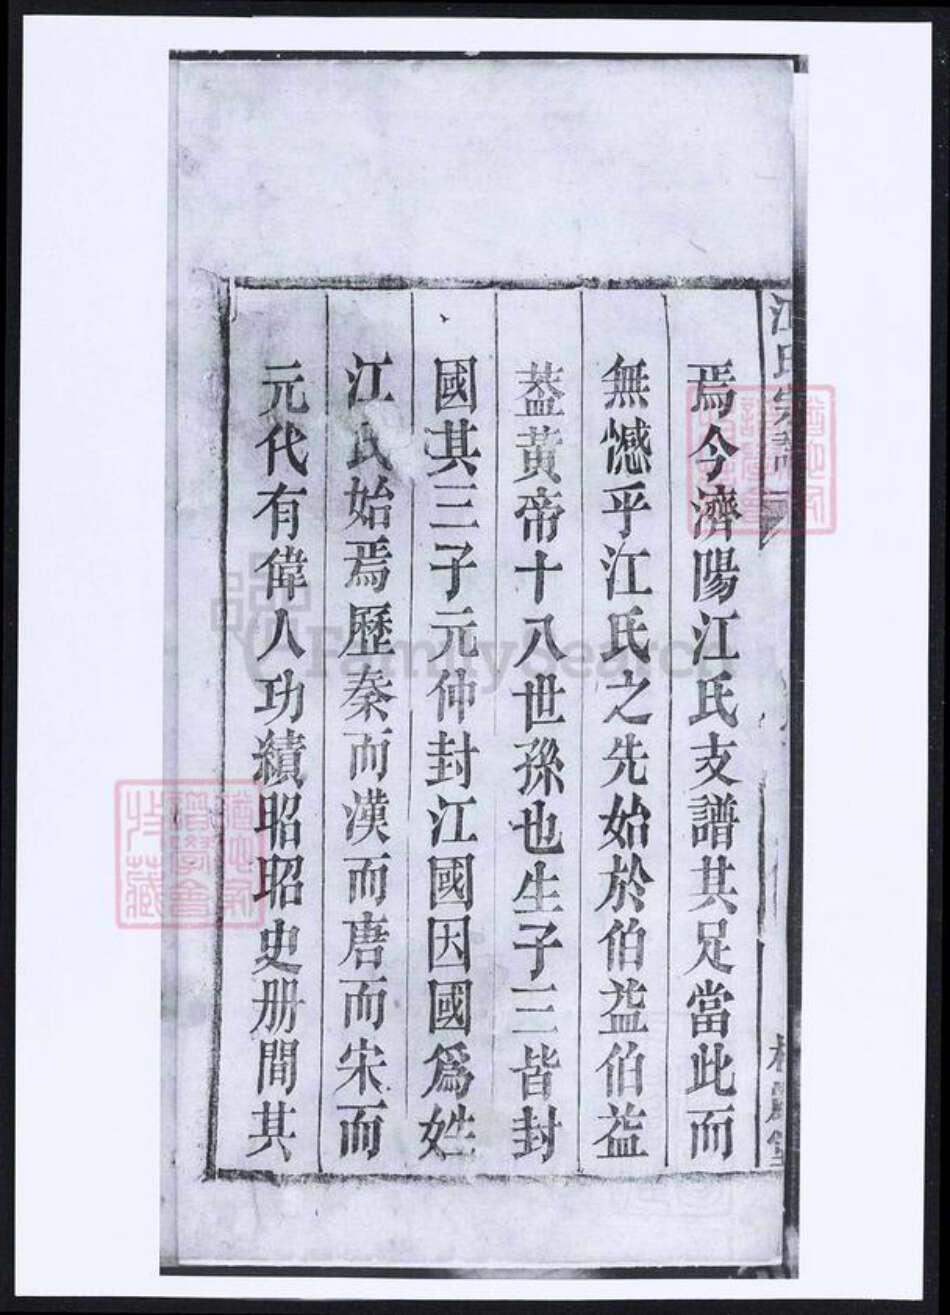 江氏宗譜
焉今濟陽江氏支譜其足當此而
無憾乎江氏之先始於伯益伯益
葢黃帝十八世孫也生子三皆封
國其三子元仲封江國因國爲姓
江氏始焉歷秦而漢而唐而宋而
元代有偉人功績昭昭史册間其
FamilySearch